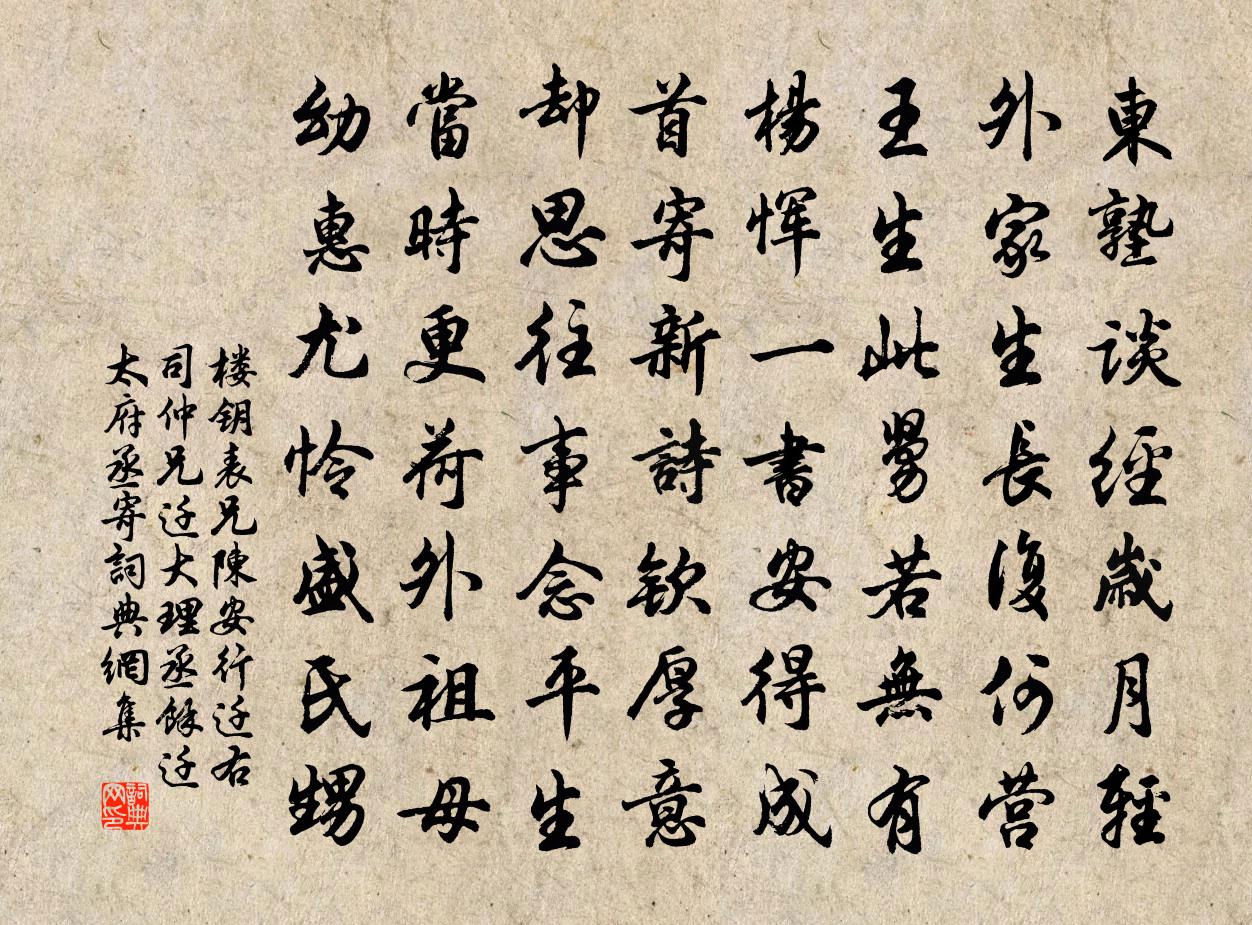 東塾談經歲月輕
外家生長復何營
王生此舅若無有
楊惲一書安得成
首寄新詩欽厚意
却思往事念平生
當時更荷外祖母
幼惠尤怜盛氏甥
楼钥表兄陳安行迁右
司仲兄迁大理丞餘迁
太府丞寄詞典網集
詞典
网印